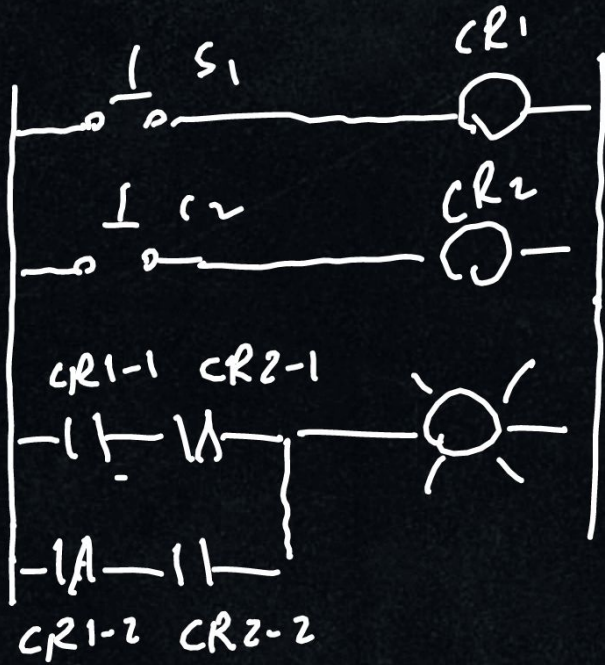 CR1
S1
CR2
CR1-1 CR2-1
CR1-2 CR2-2